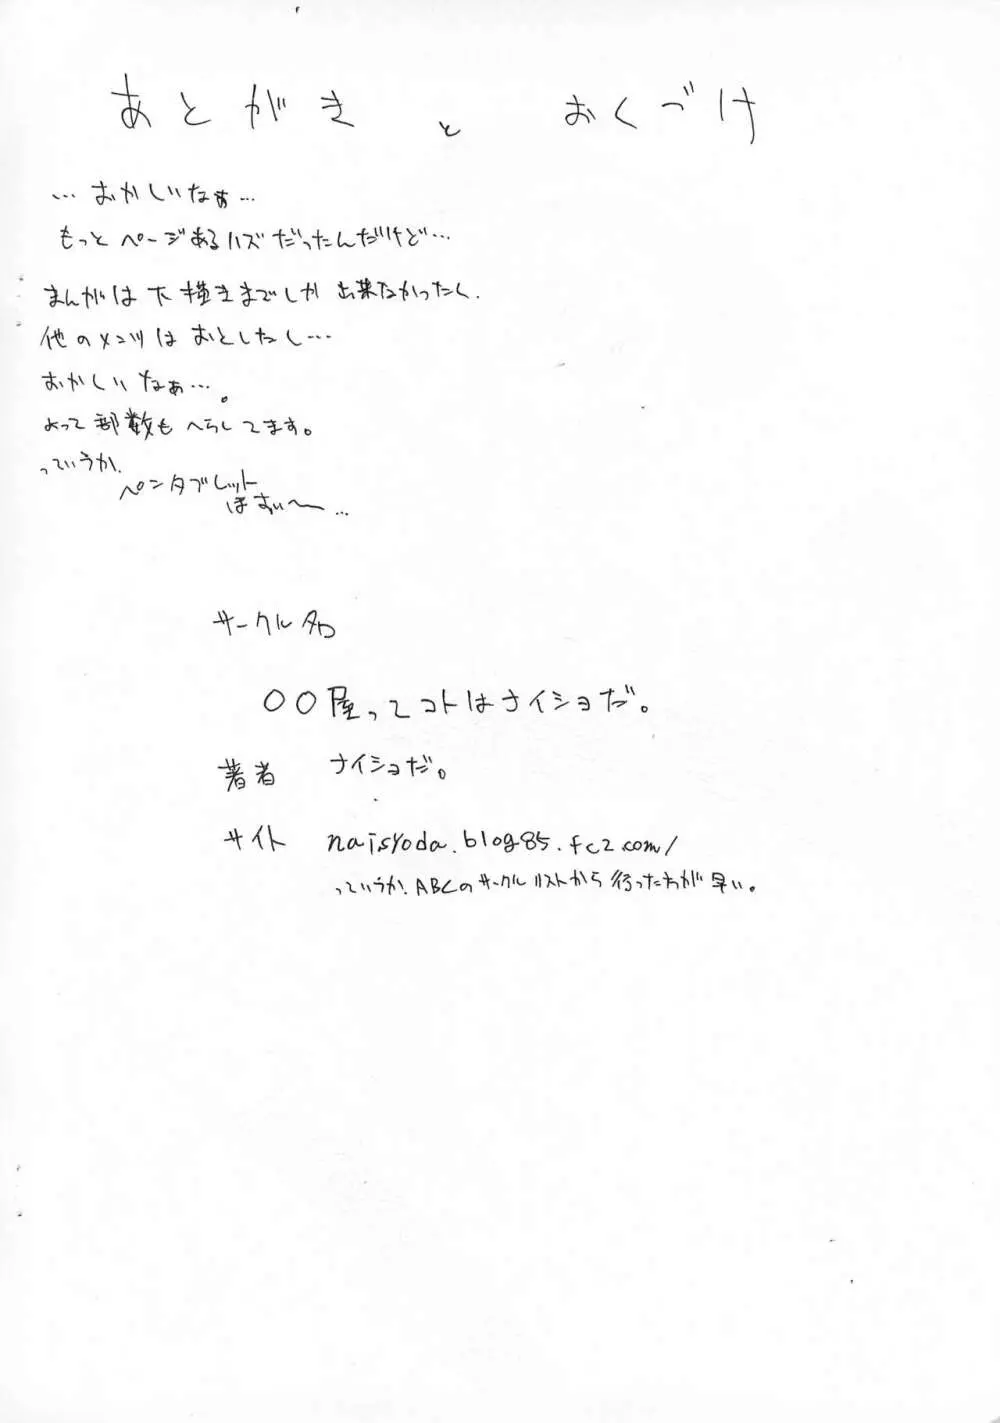 あとがき と おくづけ
…おかしいなぁ…
もっとページあるハズだったんだけど…
まんがは下描きまでしか出来なかったし、
他のメンツはおとしたし…
おかしいなぁ…。
よって部数もへらしてます。
っていうか、
ペンタブレット
ほすぃ〜…
サークル名
〇〇屋ってコトはナイショだ。
著者 ナイショだ。
サイト naisyoda.blog85.fc2.com/
っていうか、ABCのサークルリストから行ったわが早い。